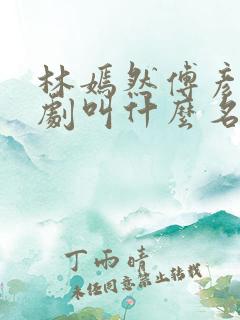 林嫣然傅彦
劇叫什麼名
丁雨晴
未经同意禁止转载